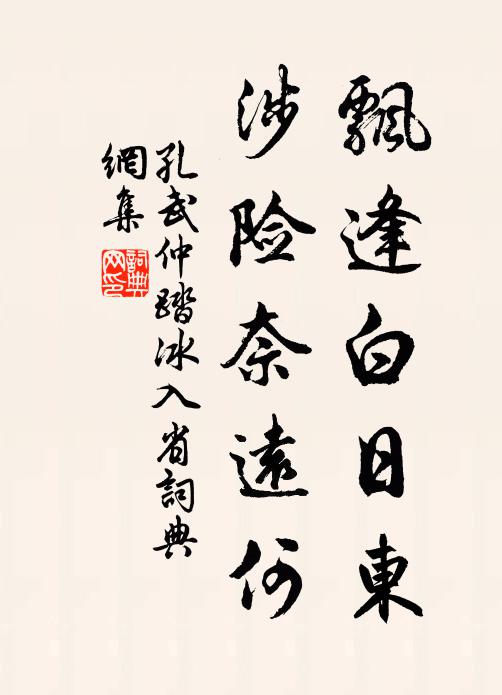 飄逢白日東
涉险奈遠何
孔武仲踏冰入省詞典
網集
詞典
网印